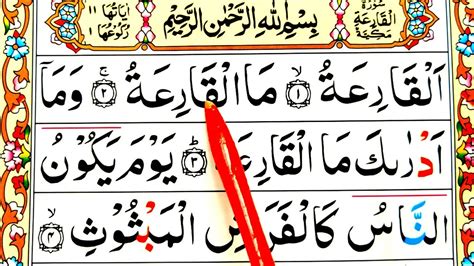 سُوْرَةُ الْقَارِعَةِ مَكِّيَّةٌ
بِسْمِ اللّٰهِ الرَّحْمٰنِ الرَّحِيْمِ
اٰيَاتُهَا ١١
رُكُوْعُهَا ١
اَلْقَارِعَةُ ۙ‏ ۝١ مَا الْقَارِعَةُ ۚ‏ ۝٢ وَمَاۤ
اَدْرٰىكَ مَا الْقَارِعَةُ ۝٣ يَوْمَ يَكُوْنُ
النَّاسُ كَالْفَرَاشِ الْمَبْثُوْثِ ۙ‏ ۝٤